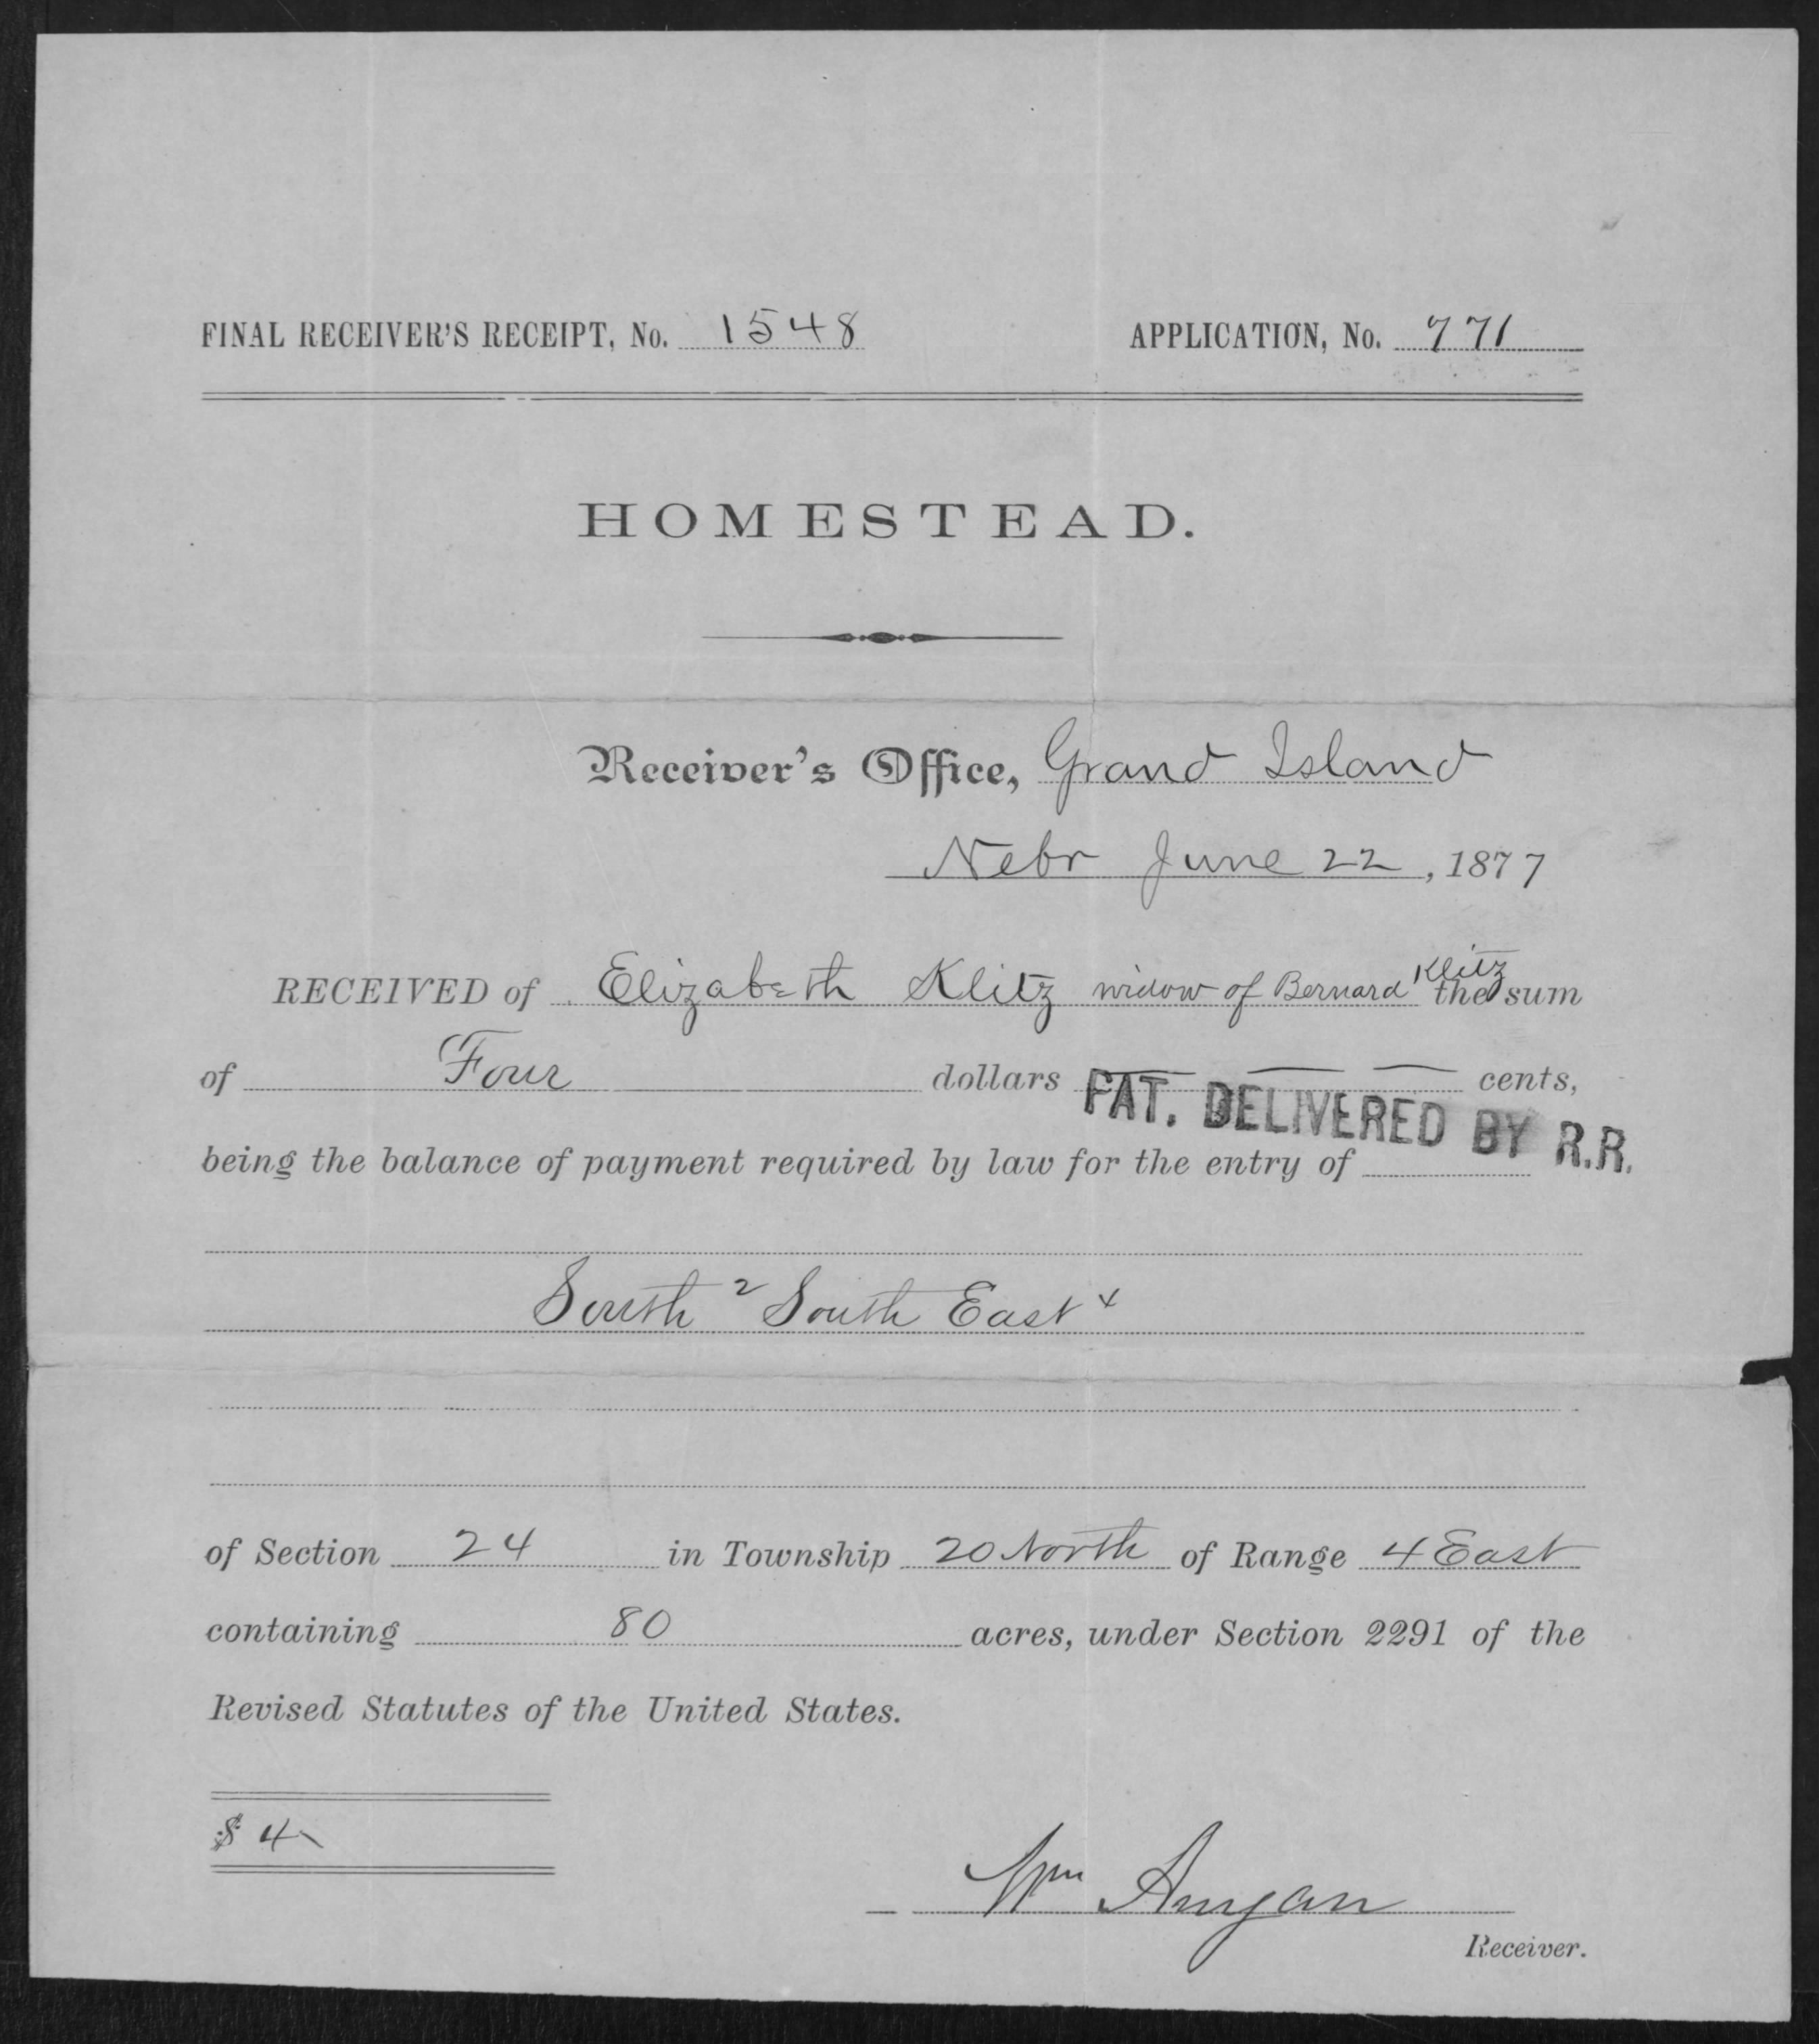 FINAL RECEIVER'S RECEIPT, No. 1548 APPLICATION, No. 771
HOMESTEAD.
Receiver's Office, Grand Island
Nebr June 22, 1877
RECEIVED of Elizabeth Klitz widow of Bernard Klitz the sum
of Four dollars — — — cents,
PAT. DELIVERED BY R.R.
being the balance of payment required by law for the entry of
South 2 South East 4
of Section 24 in Township 20 North of Range 4 East
containing 80 acres, under Section 2291 of the
Revised Statutes of the United States.
$ 4
Wm Anyan
Receiver.